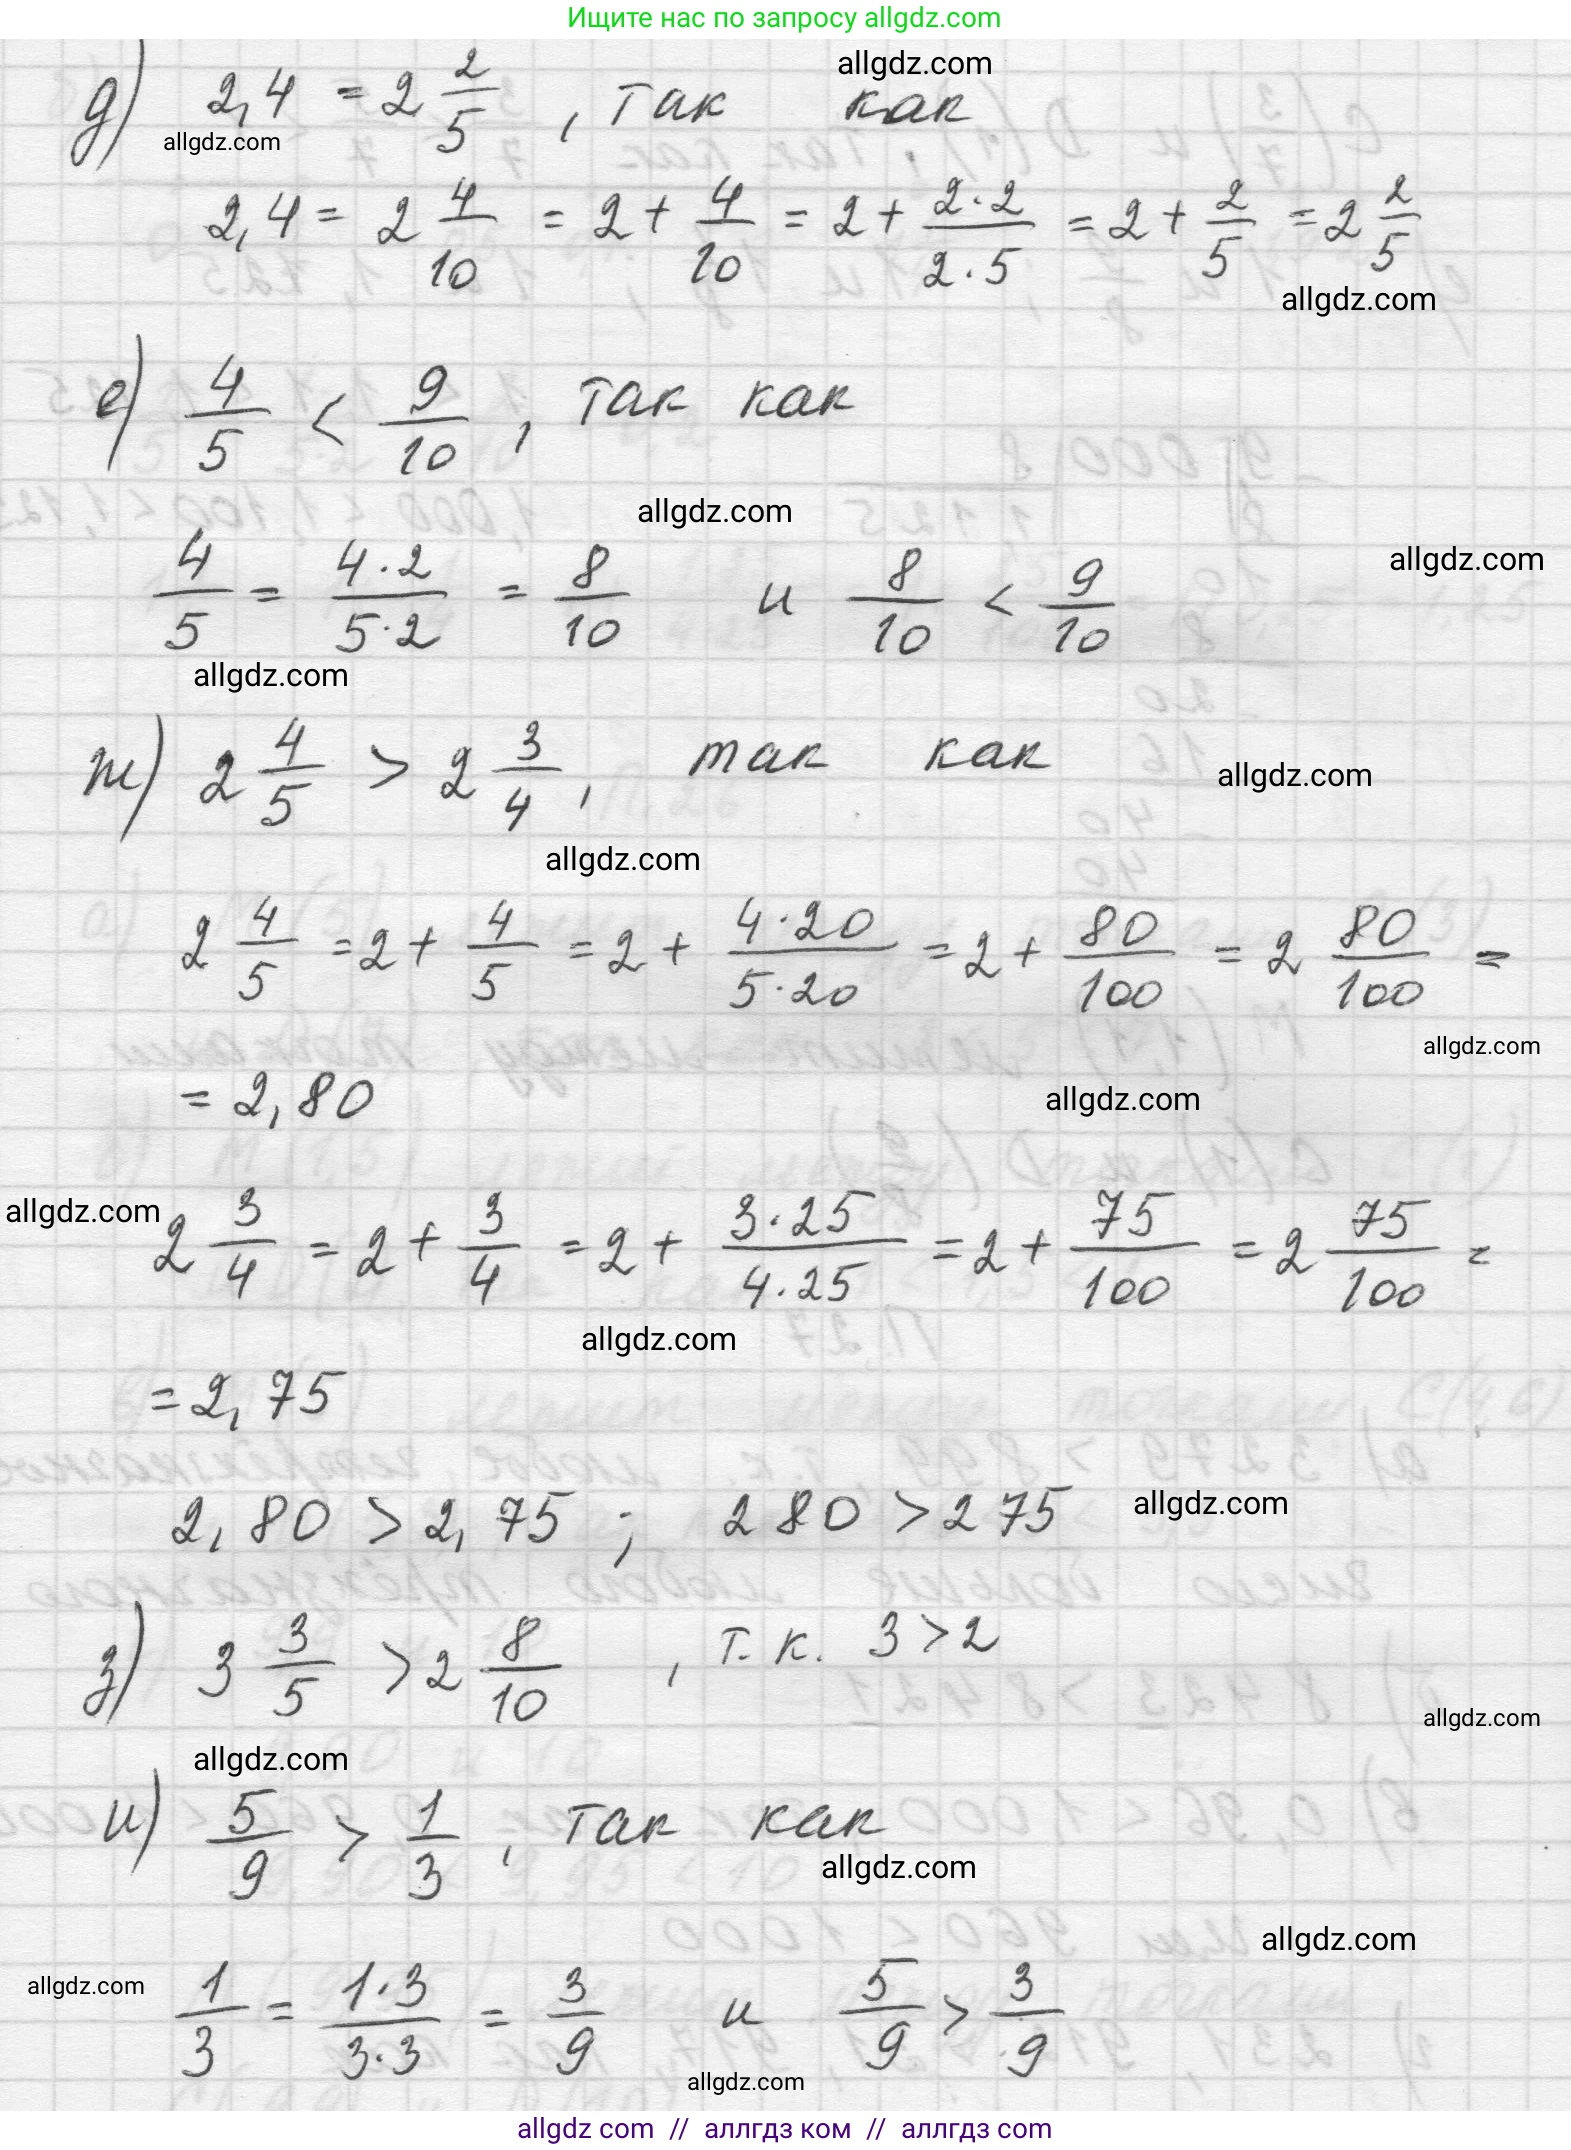 Ищите нас по запросу allgdz.com
allgdz.com
д) 2,4 = 2 2/5, так как
allgdz.com
2,4 = 2 4/10 = 2 + 4/10 = 2 + 2·2/2·5 = 2 + 2/5 = 2 2/5
allgdz.com
е) 4/5 < 9/10, так как
allgdz.com
allgdz.com
4/5 = 4·2/5·2 = 8/10 и 8/10 < 9/10
allgdz.com
ж) 2 4/5 > 2 3/4, так как
allgdz.com
allgdz.com
2 4/5 = 2 + 4/5 = 2 + 4·20/5·20 = 2 + 80/100 = 2 80/100 =
allgdz.com
= 2,80
allgdz.com
allgdz.com
2 3/4 = 2 + 3/4 = 2 + 3·25/4·25 = 2 + 75/100 = 2 75/100 =
allgdz.com
= 2,75
2,80 > 2,75 ; 280 > 275
allgdz.com
з) 3 3/5 > 2 8/10, т.к. 3 > 2
allgdz.com
allgdz.com
и) 5/9 > 1/3, так как
allgdz.com
allgdz.com
allgdz.com
1/3 = 1·3/3·3 = 3/9 и 5/9 > 3/9
allgdz.com
allgdz com // аллгдз ком // аллгдз com